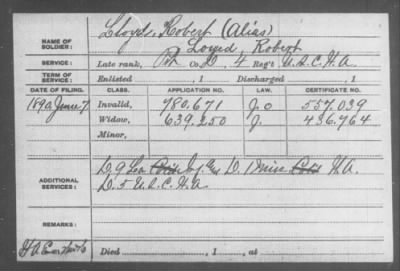 NAME OF SOLDIER: Lloyd, Robert (Alias)
Loyed Robert
SERVICE: Late rank, Pvt Co. D, 4 Reg't U.S.C.H.A.
TERM OF SERVICE: Enlisted , 1 Discharged , 1
DATE OF FILING. CLASS. APPLICATION NO. LAW. CERTIFICATE NO.
1890 June 7 Invalid, 780.671 J.O 557.039
Widow, 639.250 J. 436.764
Minor,
ADDITIONAL SERVICES: D. 9 Inf. D. 1 H.A.
D. 5 U.S.C.H.A
REMARKS:
Died , 1 , at